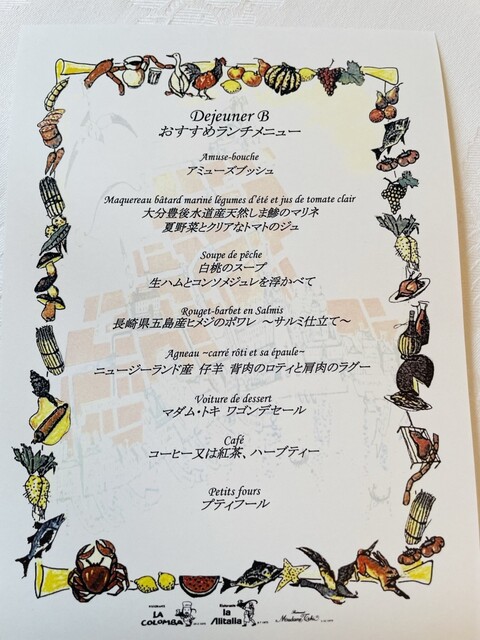 Dejeuner B
おすすめランチメニュー
Amuse-bouche
アミューズブッシュ
Maquereau bâtard mariné légumes d'été et jus de tomate clair
大分豊後水道産天然しま鯵のマリネ
夏野菜とクリアなトマトのジュ
Soupe de pêche
白桃のスープ
生ハムとコンソメジュレを浮かべて
Rouget-barbet en Salmis
長崎県五島産ヒメジのポワレ ～サルミ仕立て～
Agneau ~carré rôti et sa épaule~
ニュージーランド産 仔羊 背肉のロティと肩肉のラグー
Voiture de dessert
マダム・トキ ワゴンデセール
Café
コーヒー又は紅茶、ハーブティー
Petits fours
プティフール
LA COLOMBA
la Alitalia
Madame Toki